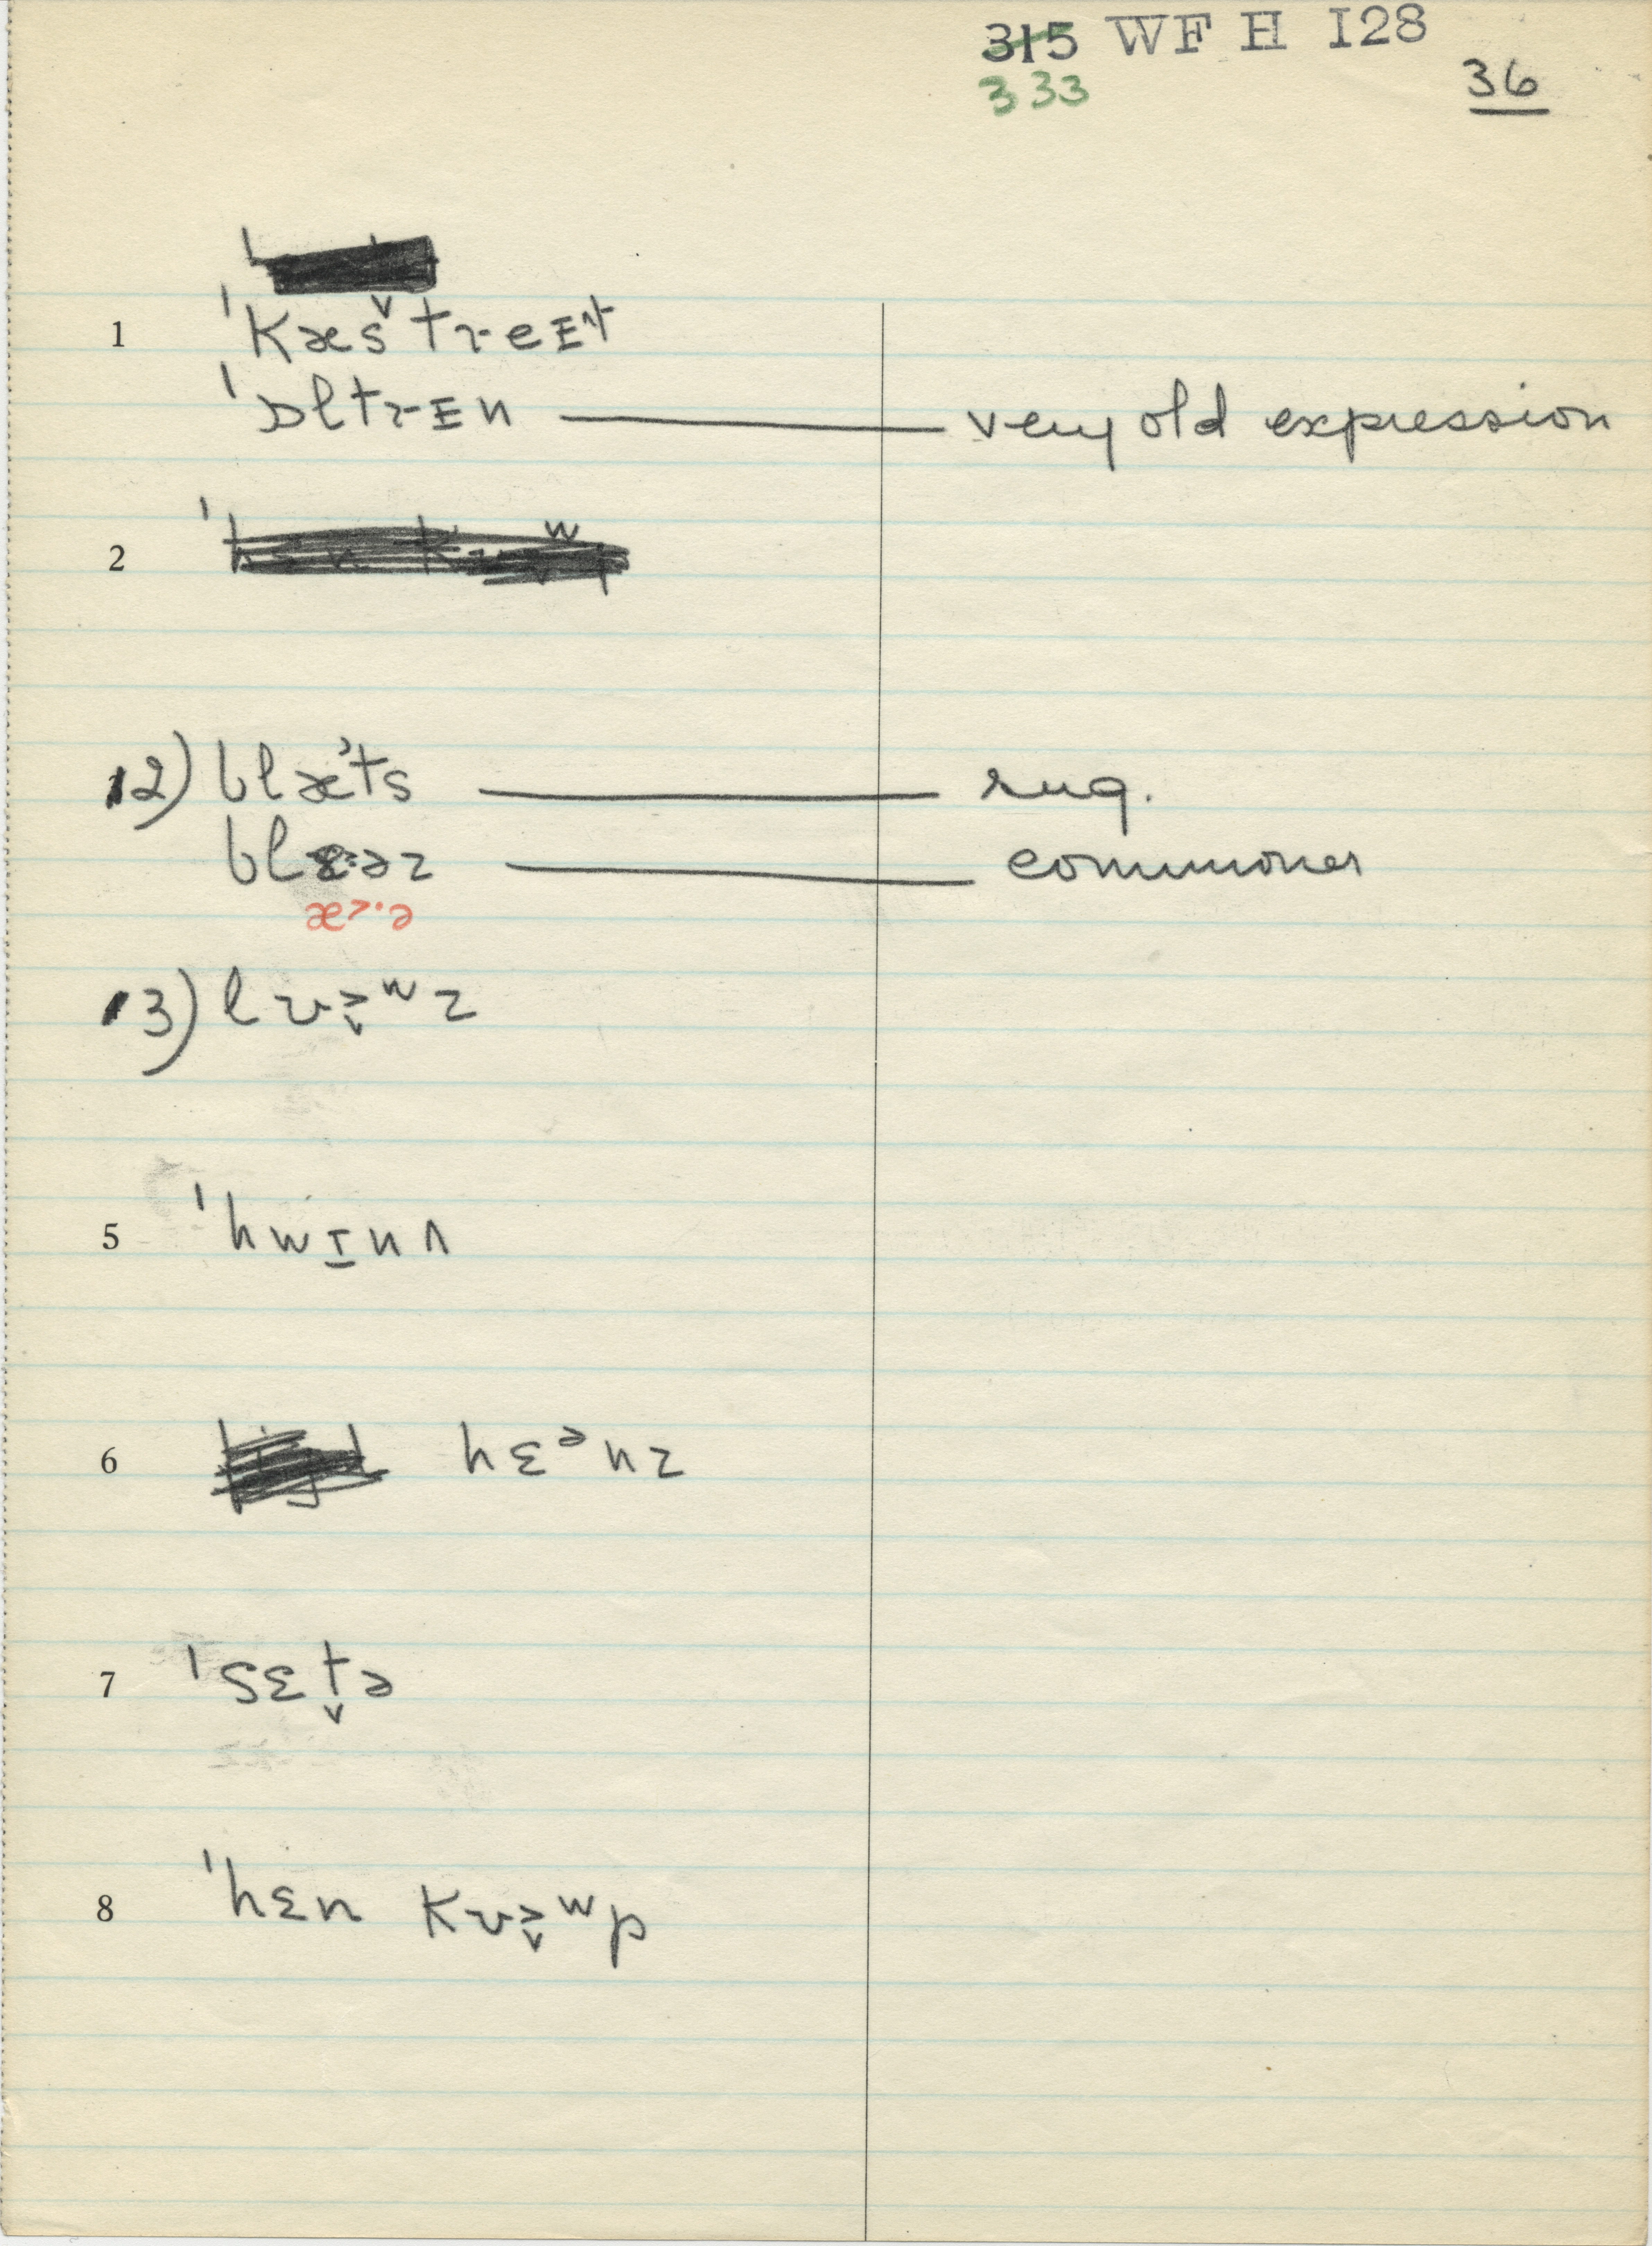 315 WF H 128
333
36
1 ˈkæs̬treɪˆt
ˈɒltrɪn — very old expression
2
12) blæˀts — sug.
blɛ·əz — commoner
æ>·ə
13) lʊ>̬ʷz
5 ˈhwɪ̱nʌ
6 hɛᵊnz
7 ˈsɛt̬ə
8 ˈhɛn kʊ>̬ʷp